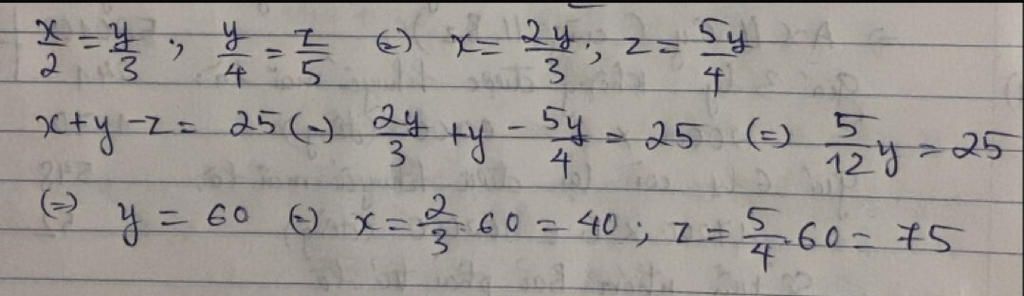 x/2 = y/3 ; y/4 = z/5 (=) x = 2y/3 ; z = 5y/4
x+y-z = 25 (=) 2y/3 + y - 5y/4 = 25 (=) 5/12 y = 25
(=) y = 60 (=) x = 2/3 . 60 = 40 ; z = 5/4 . 60 = 75